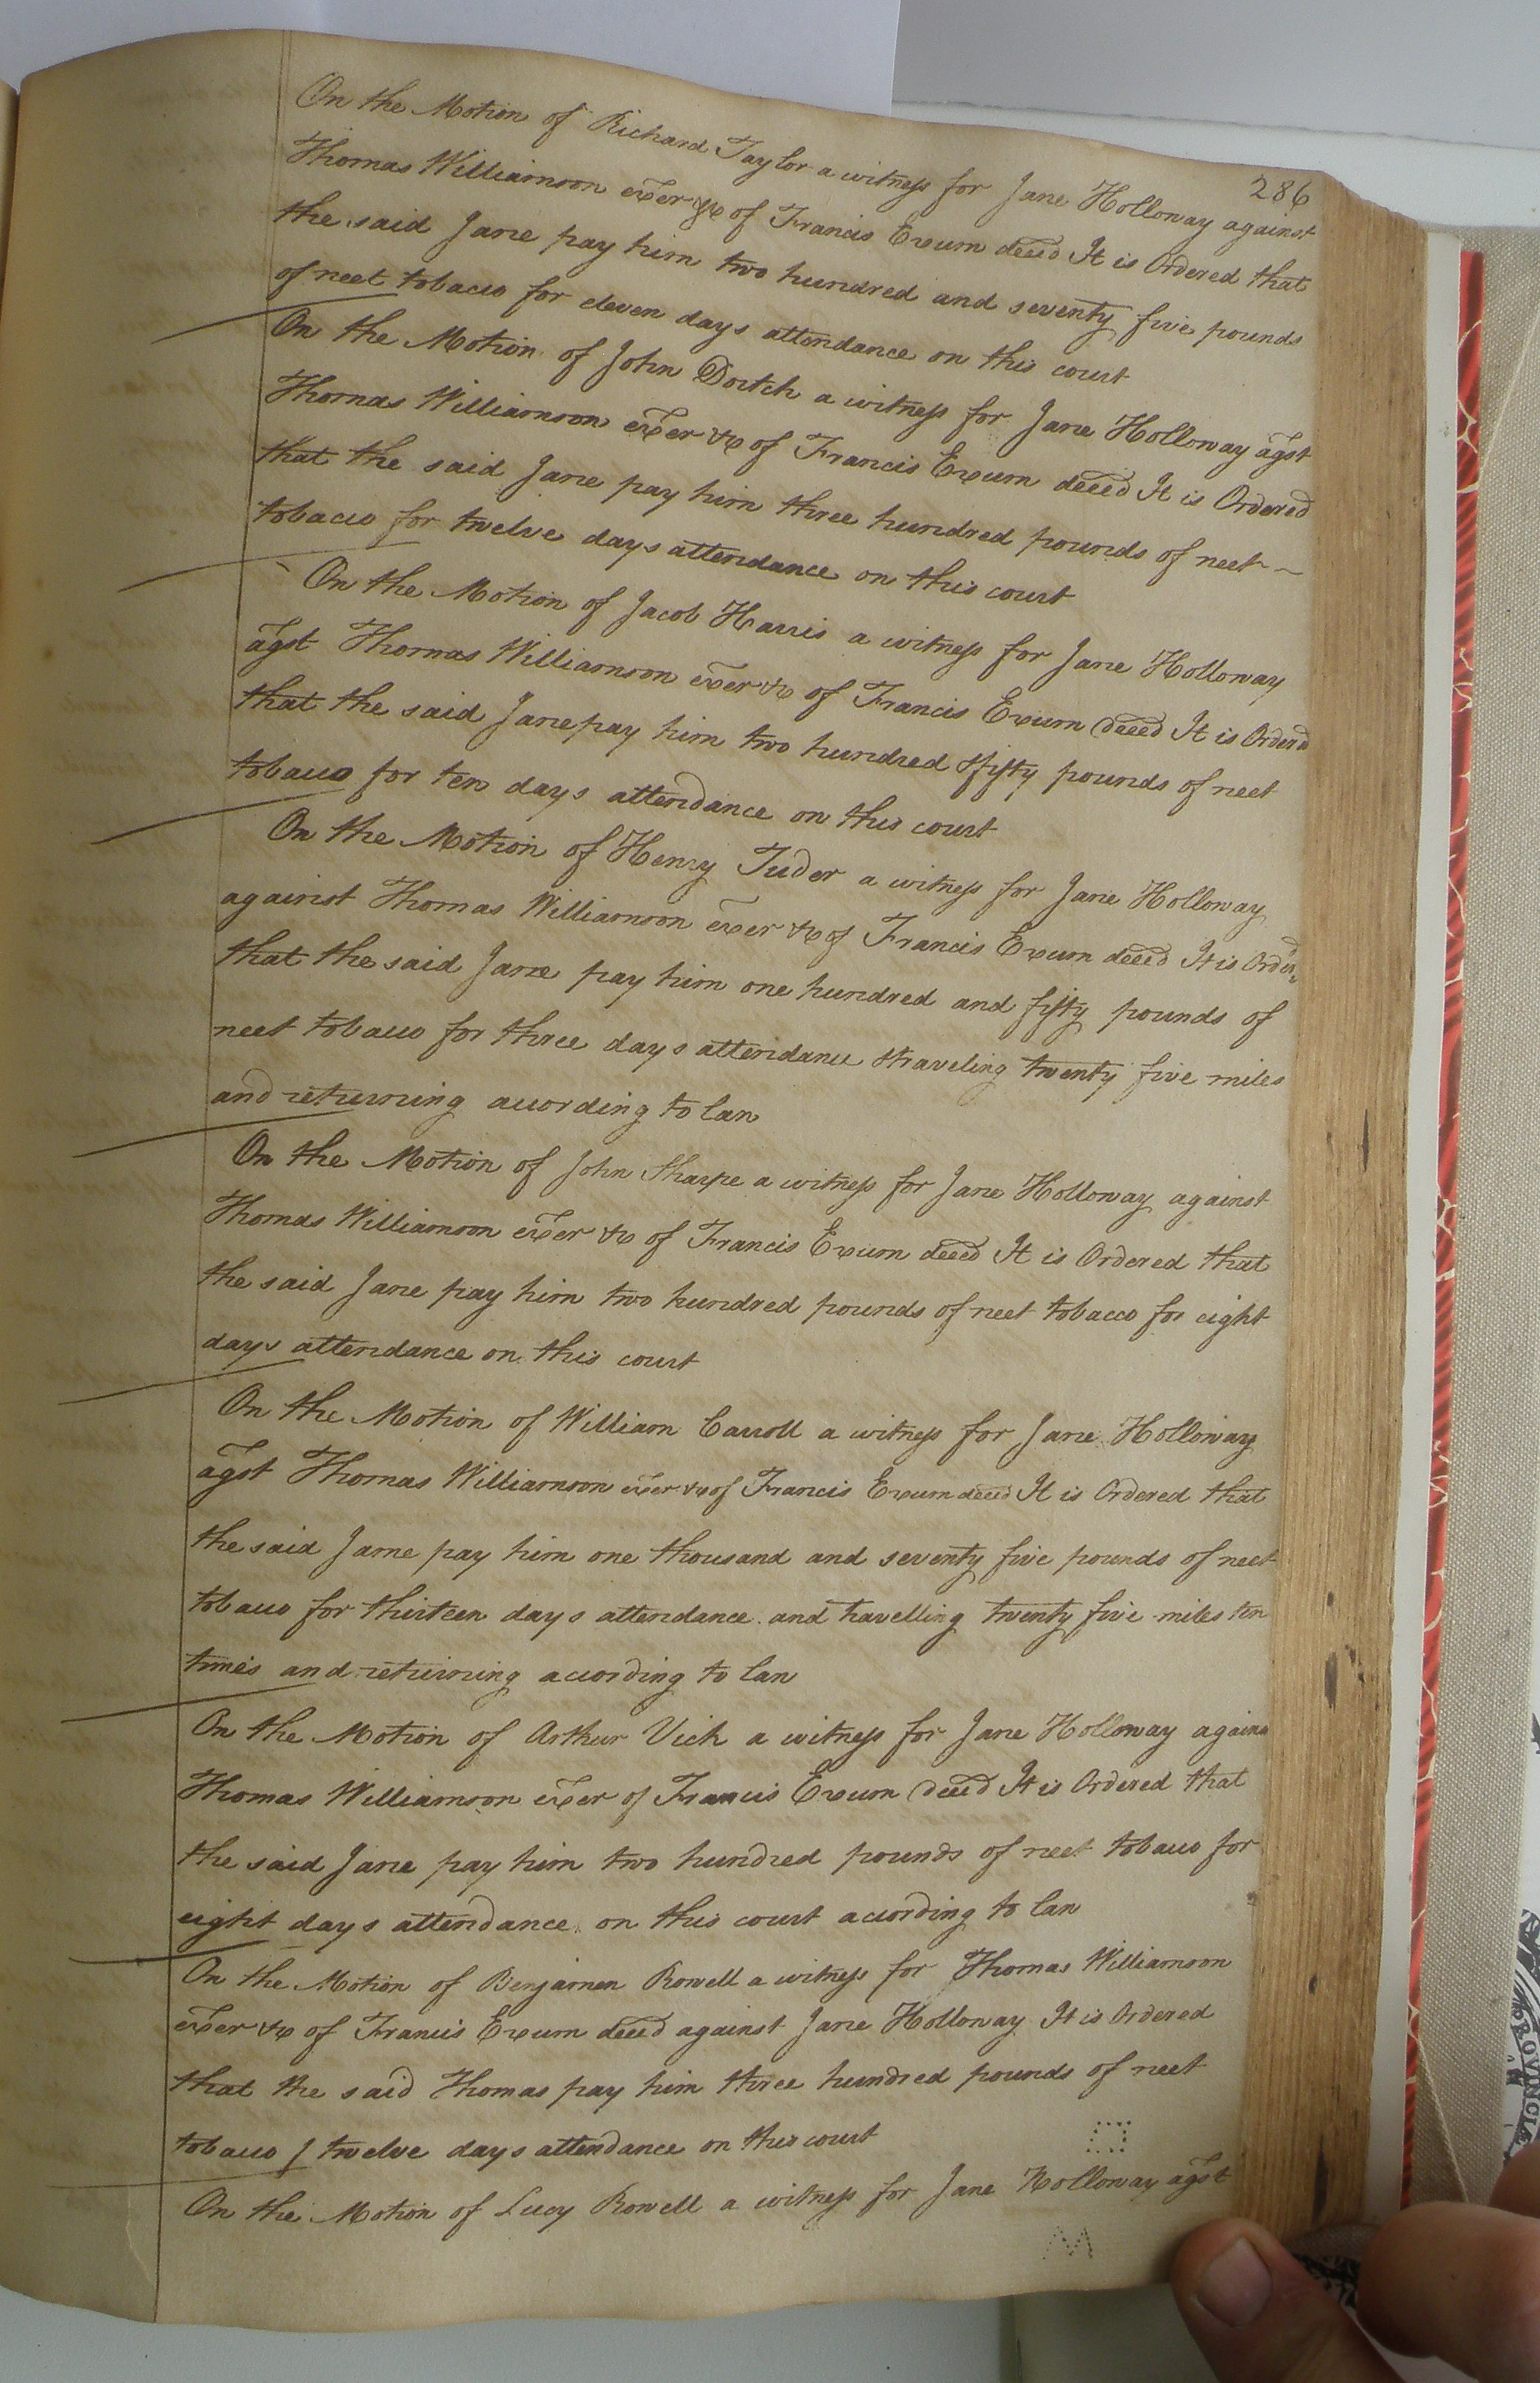 286
On the Motion of Richard Taylor a witness for Jane Holloway against
Thomas Williamson exer &c of Francis Exum deced It is Ordered that
the said Jane pay him two hundred and seventy five pounds
of neet tobacco for eleven days attendance on this court
On the Motion of John Dortch a witness for Jane Holloway agst
Thomas Williamson exer &c of Francis Exum deced It is Ordered
that the said Jane pay him three hundred pounds of neet
tobacco for twelve days attendance on this court
On the Motion of Jacob Harris a witness for Jane Holloway
agst Thomas Williamson exer &c of Francis Exum deced It is Orderd
that the said Jane pay him two hundred & fifty pounds of neet
tobacco for ten days attendance on this court
On the Motion of Henry Tuder a witness for Jane Holloway
against Thomas Williamson exer &c of Francis Exum deced It is Order
that the said Jane pay him one hundred and fifty pounds of
neet tobacco for three days attendance & traveling twenty five miles
and returning according to law
On the Motion of John Sharpe a witness for Jane Holloway against
Thomas Williamson exer &c of Francis Exum deced It is Ordered that
the said Jane pay him two hundred pounds of neet tobacco for eight
days attendance on this court
On the Motion of William Carroll a witness for Jane Holloway
agst Thomas Williamson exer &c of Francis Exum deced It is Ordered that
the said Jame pay him one thousand and seventy five pounds of neet
tobacco for thirteen days attendance and travelling twenty five miles ten
times and returning according to law
On the Motion of Arthur Vick a witness for Jane Holloway agains
Thomas Williamson exer of Francis Exum deced It is Ordered that
the said Jane pay him two hundred pounds of neet tobacco for
eight days attendance on this court according to law
On the Motion of Benjamen Rowell a witness for Thomas Williamson
exer &c of Francis Exum deced against Jane Holloway It is Ordered
that the said Thomas pay him three hundred pounds of neet
tobacco f twelve days attendance on this court
On the Motion of Lucy Rowell a witness for Jane Holloway agst